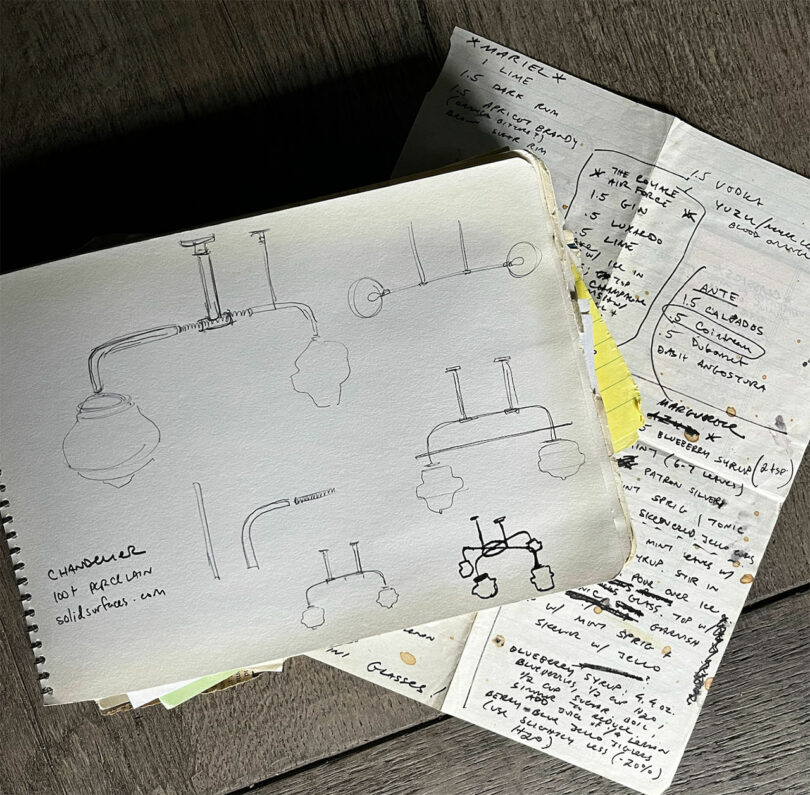 *MARIEL*
1 LIME
1.5 DARK RUM
1.5 APRICOT BRANDY
BROWN SUGAR RIM
* THE ROYALE
AIR FORCE *
1.5 GIN
.5 LUXARDO
.5 LIME
W/ ICE IN
TOP
CHAMPAGNE
1.5 VODKA
YUZU/
BLOOD ORANGE
ANTE
1.5 CALVADOS
.5 Cointreau
.5 Dubonnet
DASH ANGOSTURA
*
BLUEBERRY SYRUP (2 tsp)
MINT (6-7 LEAVES)
PATRON SILVER
MINT SPRIG | TONIC
SKEWERED JELLO
MINT LEAVES W/
SYRUP STIR IN
POUR OVER ICE
GLASS. TOP W/
GARNISH
W/ MINT SPRIG +
SKEWR W/ JELLO
BLUEBERRY SYRUP: 4.4 oz.
BLUEBERRIES, 1/2 CUP H2O,
1/2 CUP SUGAR BOIL,
SIMMER TO REDUCE,
ADD JUICE OF 1/4 LEMON
BERRY-BLUE JELLO JIGLERS
(USE SLIGHTLY LESS (-20%)
H2O)
GLASSES!
CHANDELIER
100+ PORCELAIN
solidsurfaces.com